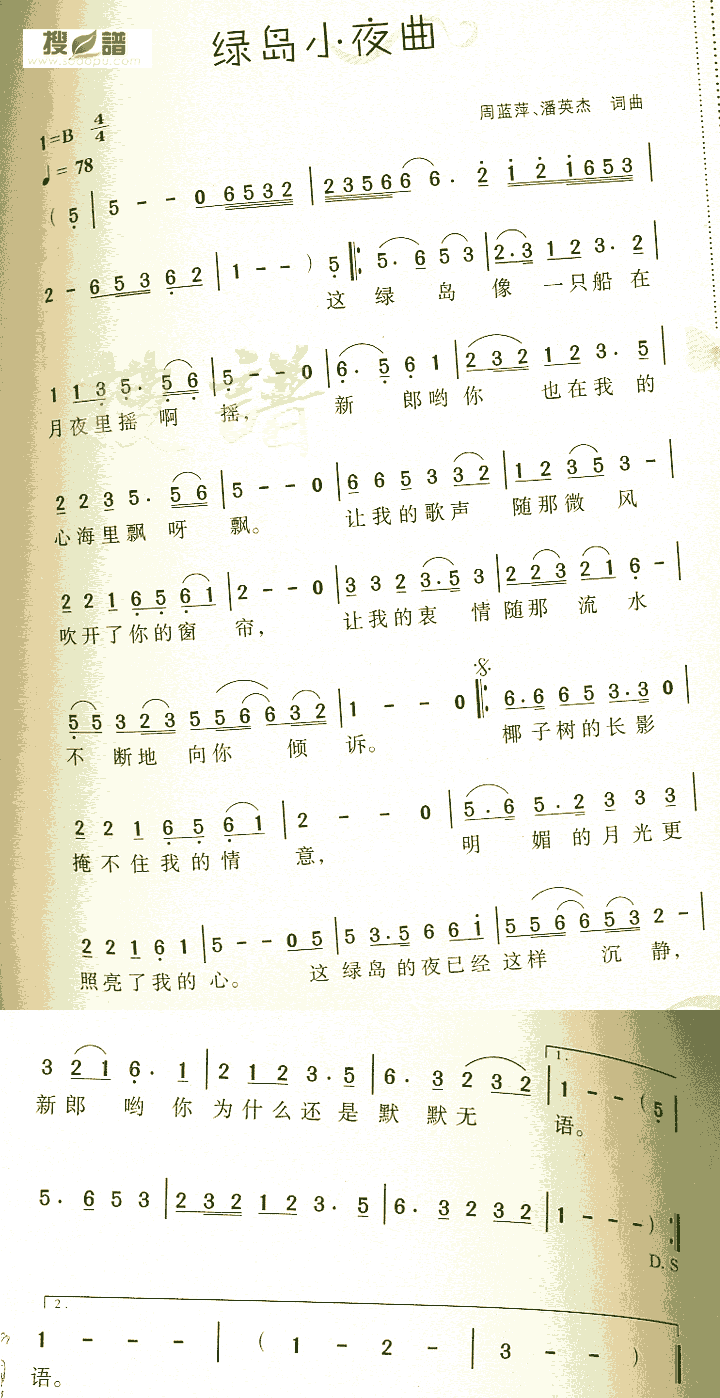 搜譜
www.sooopu.com
绿岛小夜曲
周蓝萍、潘英杰 词曲
1=B 4/4
♩= 78
( 5 | 5 - - 0 6 5 3 2 | 2 3 5 6 6 6 · 2 1 2 1 6 5 3 |
2 - 6 5 3 6 2 | 1 - - ) 5 ‖: 5 · 6 5 3 | 2 · 3 1 2 3 · 2 |
这 绿 岛 像 一 只 船 在
1 1 3 5 · 5 6 | 5 - - 0 | 6 · 5 6 1 | 2 3 2 1 2 3 · 5 |
月 夜 里 摇 啊 摇, 新 郎 哟 你 也 在 我 的
2 2 3 5 · 5 6 | 5 - - 0 | 6 6 5 3 3 2 | 1 2 3 5 3 - |
心 海 里 飘 呀 飘。 让 我 的 歌 声 随 那 微 风
2 2 1 6 5 6 1 | 2 - - 0 | 3 3 2 3 · 5 3 | 2 2 3 2 1 6 - |
吹 开 了 你 的 窗 帘, 让 我 的 衷 情 随 那 流 水
5 5 3 2 3 5 5 6 6 3 2 | 1 - - 0 ‖: 6 · 6 6 5 3 · 3 0 |
不 断 地 向 你 倾 诉。 椰 子 树 的 长 影
2 2 1 6 5 6 1 | 2 - - 0 | 5 · 6 5 · 2 3 3 3 |
掩 不 住 我 的 情 意, 明 媚 的 月 光 更
2 2 1 6 1 | 5 - - 0 5 | 5 3 · 5 6 6 1 | 5 5 6 6 5 3 2 - |
照 亮 了 我 的 心。 这 绿 岛 的 夜 已 经 这 样 沉 静,
3 2 1 6 · 1 | 2 1 2 3 · 5 | 6 · 3 2 3 2 | 1. 1 - - ( 5 |
新 郎 哟 你 为 什 么 还 是 默 默 无 语。
5 · 6 5 3 | 2 3 2 1 2 3 · 5 | 6 · 3 2 3 2 | 1 - - - ) :‖
D.S
2.
1 - - - | ( 1 - 2 - | 3 - - ) ‖
语。